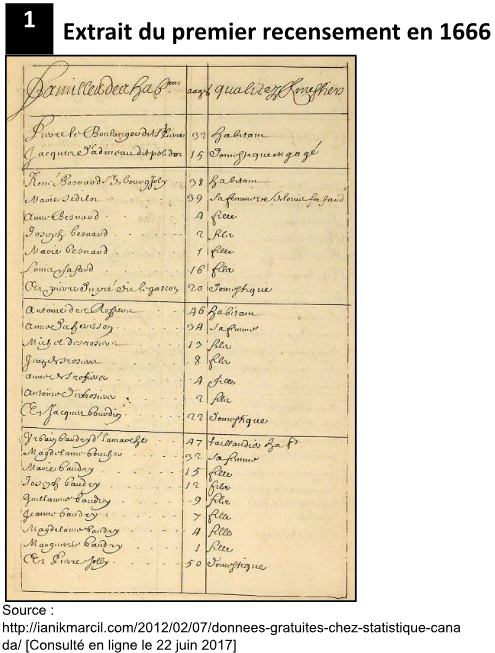 1 Extrait du premier recensement en 1666
Familles des hab.ans aages qualitez & mestiers
Pierre le Boulanger dit St Pierre 32 habitant
Jacques 15 Domestique engagé
René Besnard dit bourgjoly 38 habitant
Marie Sedilot 39 sa femme
Anne Besnard 4 fille
Joseph besnard 2 filz
Marie besnard 1 fille
Louis fafard 16 filz
Et dit le gascon 20 Domestique
Antoine des Rosiers 46 habitant
Anne Du herisson 34 sa femme
Michel desrosiers 13 filz
Jean desrosiers 8 filz
Anne desrosiers 4 fille
Antoine desrosiers 2 filz
Et Jacques bourdin 22 Domestique
Urbain baudry d. lamarche 47 taillandier hab.t
Magdelaine boucher 32 sa femme
Marie baudry 15 fille
Joseph baudry 12 filz
Guillaume baudry 9 filz
Jeanne baudry 7 fille
Magdelaine baudry 4 fille
Marguerite baudry 1 fille
Et Pierre Jolly 50 Domestique
Source :
http://ianikmarcil.com/2012/02/07/donnees-gratuites-chez-statistique-cana
da/ [Consulté en ligne le 22 juin 2017]